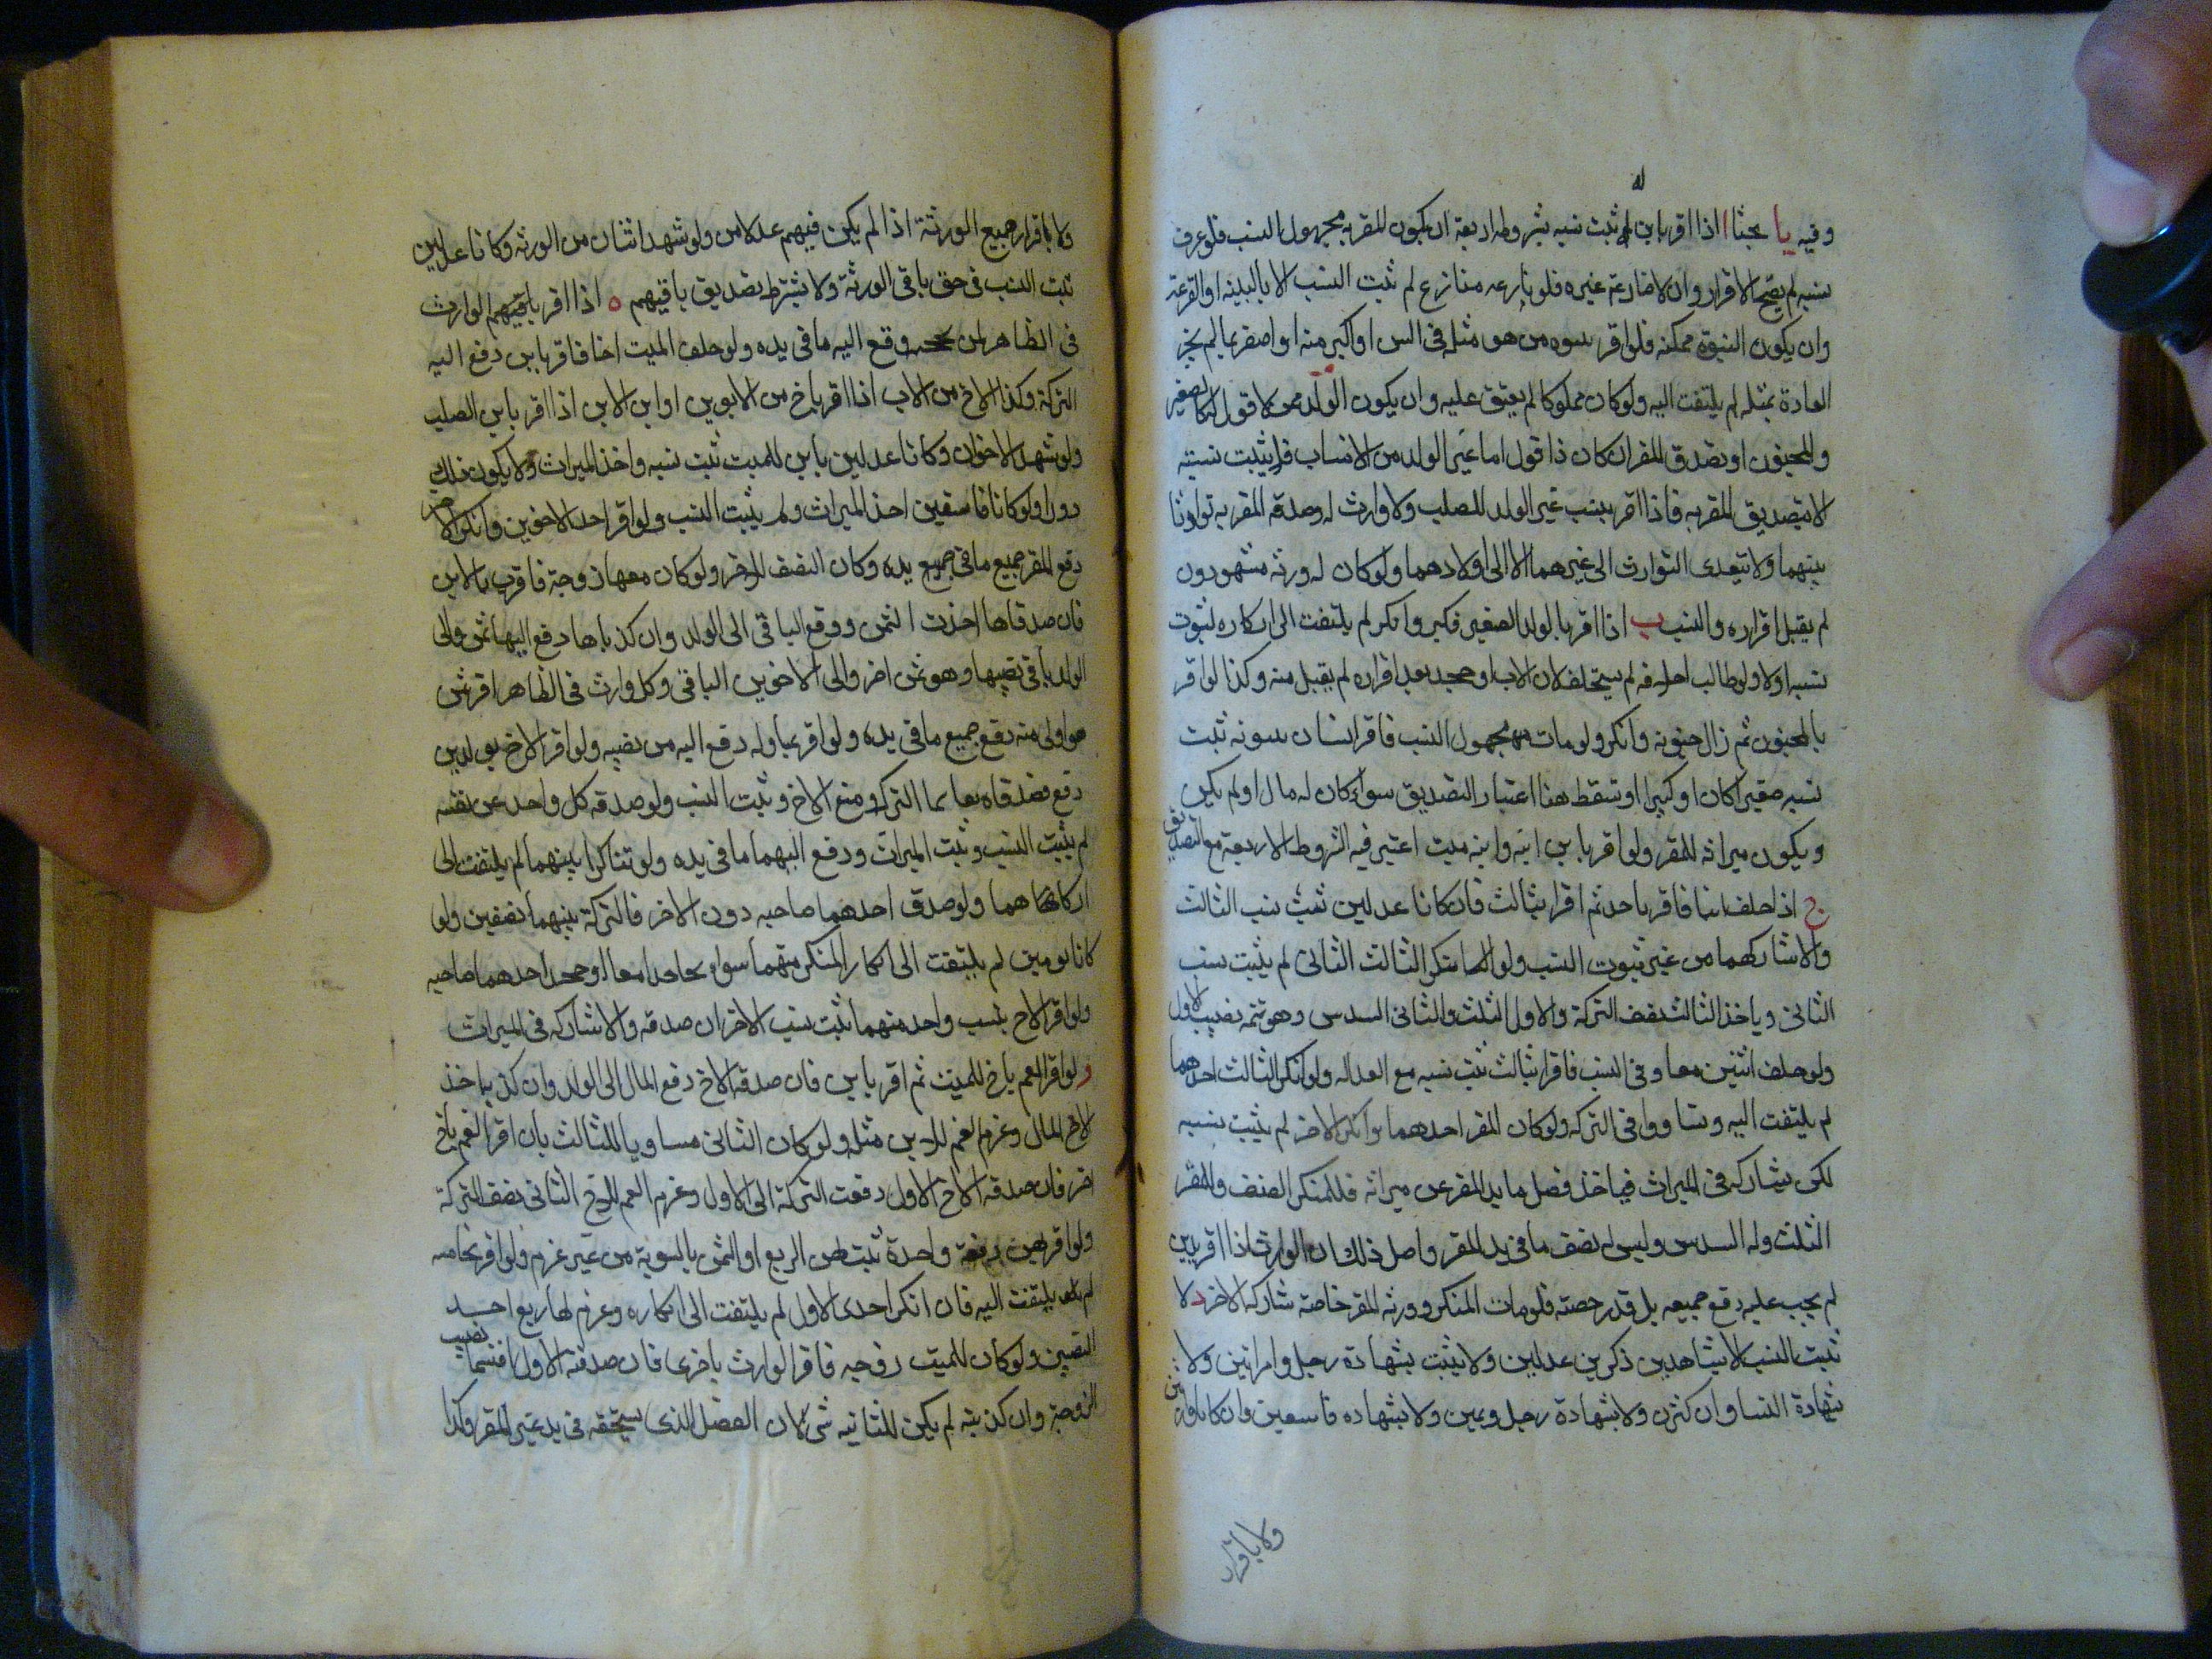 له
وفيه يا بحثا ا اذا اقر بابن ثبت نسبه بشروط اربعة ان يكون المقر به مجهول النسب فلو عرف
نسبه لم يصح الاقرار وان لا ينازعه غيره فلو نازعه منازع لم تثبت النسب الا بالبينه او القرعة
وان يكون البنوة ممكنه فلو اقر ببنوه من هو مثله في السن او اكبر منه او اصغر بما لم يجر
العادة بمثله لم يلتفت اليه ولو كان مملوكا لم يعتق عليه وان يكون الولد ممن لا قول له كالصغير
والمجنون او يصدق المقر ان كان ذا قول اما غير الولد من الانساب فلا يثبت نسبته
الا بتصديق المقر به فاذا اقر بنسب غير الولد للصلب ولا وارث له وصدقه المقر به توارثا
بينهما ولا يتعدى التوارث الى غيرهما الا الى اولادهما ولو كان له ورثه مشهورون
لم يقبل اقراره والنسب ب اذا اقر بالولد الصغير فكبر وانكر لم يلتفت الى انكاره لثبوت
نسبه اولا ولو طالب احلافه لم يستحلف لان الاب لو جحد بعد اقراره لم يقبل منه وكذا لو اقر
بالمجنون ثم زال جنونه وانكر ولو مات مجهول النسب فاقر انسان ببنوته ثبت
نسبه صغيرا كان او كبيرا وسقط هنا اعتبار التصديق سواء كان له مال او لم يكن
ويكون ميراثه للمقر ولو اقر بابن ابنه وابنه ميت اعتبر فيه الشروط الاربعة مع التصديق
ج اذا خلف ابنا فاقر باحد ثم اقرا بثالث فان كانا عدلين ثبت نسب الثالث
والا شاركهما من غير ثبوت النسب ولو انكر الثالث الثاني لم يثبت نسب
الثاني وياخذ الثالث نصف التركة والاول الثلث والثاني السدس وهو تتمه نصيب الاول
ولو خلف اثنين معلومي النسب فاقرا بثالث ثبت نسبه مع العداله ولو انكر الثالث احدهما
لم يلتفت اليه وتساووا في التركه ولو كان المقر احدهما وانكر الاخر لم يثبت نسبه
لكن يشاركه في الميراث فياخذ فضل ما بيد المقر عن ميراثه فللمنكر النصف وللمقر
الثلث وله السدس وليس له نصف ما في يد المقر واصل ذلك ان الوارث اذا اقر بدين
لم يجب عليه دفع جميعه بل قدر حصته فلو مات المنكر وورثه المقر خاصة شاركه الاخر د لا
تثبت النسب الا بشاهدين ذكرين عدلين ولا يثبت بشهادة رجل وامراتين ولا
بشهادة النسا وان كثرن ولا بشهادة رجل ويمين ولا بشهاده فاسقين وان كانا وارثين
ولا باقرار
ولا باقرار جميع الورثة اذا لم يكن فيهم عدلان ولو شهد اثنان من الورثه وكانا عدلين
ثبت النسب في حق باقي الورثة ولا يشترط تصديق باقيهم ه اذا اقر الوارث
في الظاهر دفع اليه ما في يده ولو خلف الميت اخا فاقر بابن دفع اليه
التركة وكذا الاخ من الاب اذا اقر باخ من الابوين او ابن الابن اذا اقر بابن الصلب
ولو شهد الاخوان وكانا عدلين بابن للميت ثبت نسبه واخذ الميراث ولا يكون ذلك
دورا ولو كانا فاسقين اخذ الميراث ولم يثبت النسب ولو اقر احد الاخوين وانكر الاخر
دفع المقر جميع ما في يده وكان النصف للاخر ولو كان معها زوجة فاقرت بالابن
فان صدقاها اخذت الثمن ودفع الباقي الى الولد وان كذباها دفع اليها ثمن والى
الولد باقي نصيبها وهو ثمن اخر والى الاخوين الباقي وكل وارث في الظاهر اقر بمن
هو اولى منه دفع جميع ما في يده ولو اقر بمساو له دفع اليه من نصيبه ولو اقر الاخ بولدين
دفعة فصدقاه التركة ومنع الاخ وثبت النسب ولو صدقه كل واحد عن نفسه
لم يثبت النسب وثبت الميراث ودفع اليهما ما في يده ولو تناكرا بينهما لم يلتفت الى
انكارهما ولو صدق احدهما صاحبه دون الاخر فالتركة بينهما نصفين ولو
كانا تومين لم يلتفت الى انكار المنكر منهما سواء تجاحدا معا او جحد احدهما صاحبه
ولو اقر الاخ بنسب واحد منهما ثبت نسب الاخر ان صدقه والا شاركه في الميراث
و لو اقر العم باخ للميت ثم اقر بابن فان صدقه الاخ دفع المال الى الولد وان كذب اخذ
الاخ المال وغرم العم للابن مثله ولو كان الثاني مساويا للثالث بان اقر العم باخ
اخر فان صدقه الاخ الاول دفعت التركة الى الاول وغرم العم للاخ الثاني نصف التركة
ولو اقر بهن دفعة واحدة ثبت لهن الربع او الثمن بالسوية من غير غرم ولو اقر بخامسه
لم يلتفت اليه فان انكر احدى الاول لم يلتفت الى انكاره وغرم لها ربع احد
النصيبين ولو كان للميت زوجه فاقر الوارث باخرى فان صدقته الاولى اقتسما نصيب
الزوجة وان كذبته لم يكن للثانيه شي لان الفضل الذي يستحقه في يد غير المقر وكذا